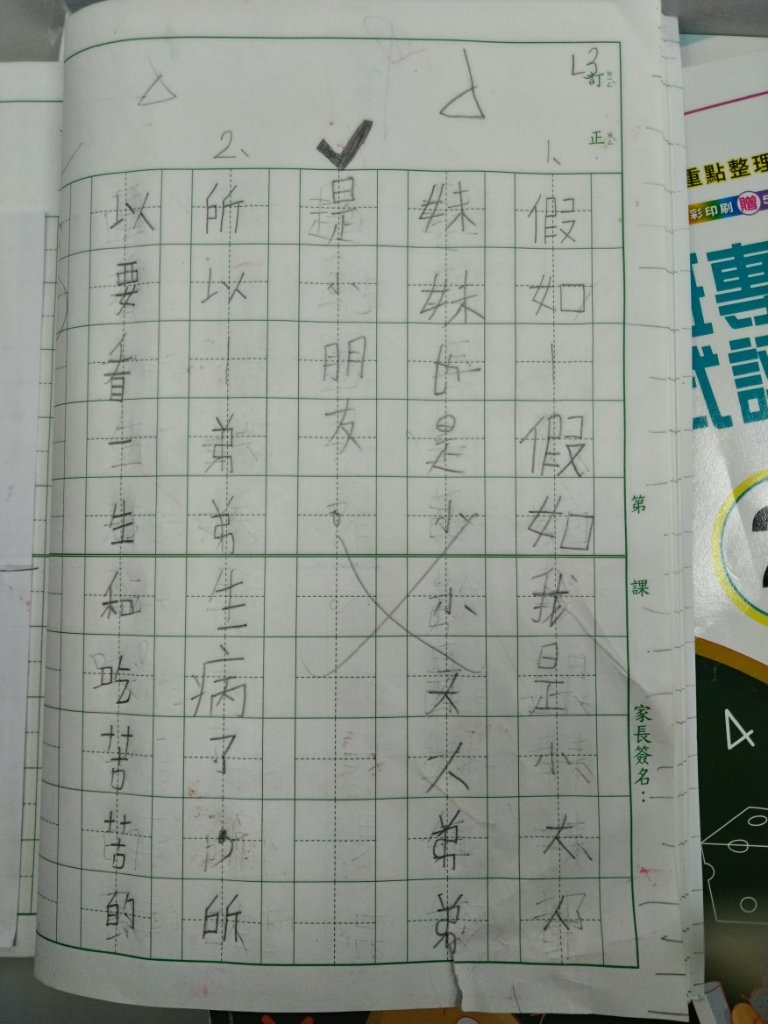 L3
訂正
1、
假如｜假如我是小大人
妹妹是小小大人弟弟
是小朋友。
2、
所以｜弟弟生病了，所
以要看一生和吃苦苦的
第 課
家長簽名：
重點整理
彩印刷 贈
專
4